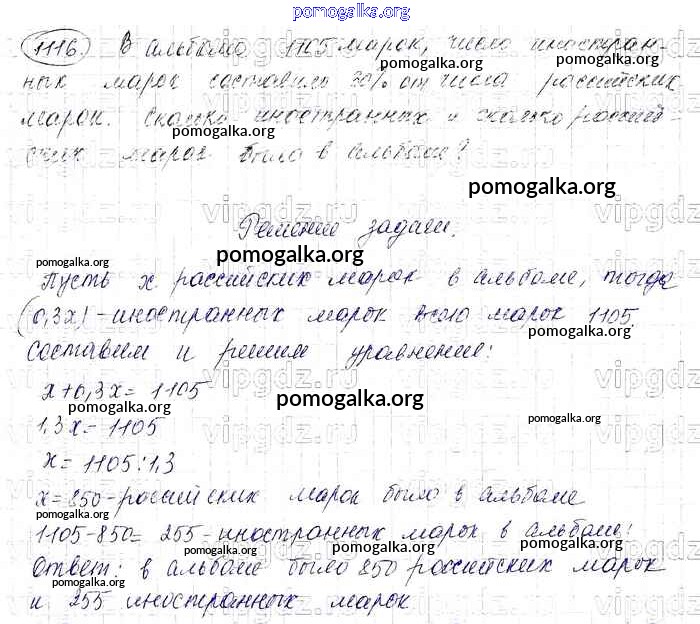 pomogalka.org
1116. В альбоме 1105 марок, число иностран-
pomogalka.org
pomogalka.org
ных марок составило 30% от числа российских
марок. Сколько иностранных и сколько россий-
pomogalka.org
ских марок было в альбоме?
pomogalka.org
vipgdz.ru
Решение задачи.
pomogalka.org
pomogalka.org
pomogalka.org
Пусть x российских марок в альбоме, тогда
(0,3x) - иностранных марок. Всего марок 1105.
pomogalka.org
Составим и решим уравнение:
x+0,3x=1105
pomogalka.org
pomogalka.org
pomogalka.org
1,3x=1105
x=1105:1,3
x=850-российских марок было в альбоме
pomogalka.org
pomogalka.org
1105-850=255-иностранных марок в альбоме!
pomogalka.org
pomogalka.org
Ответ: в альбоме было 850 российских марок
pomogalka.org
pomogalka.org
и 255 иностранных марок